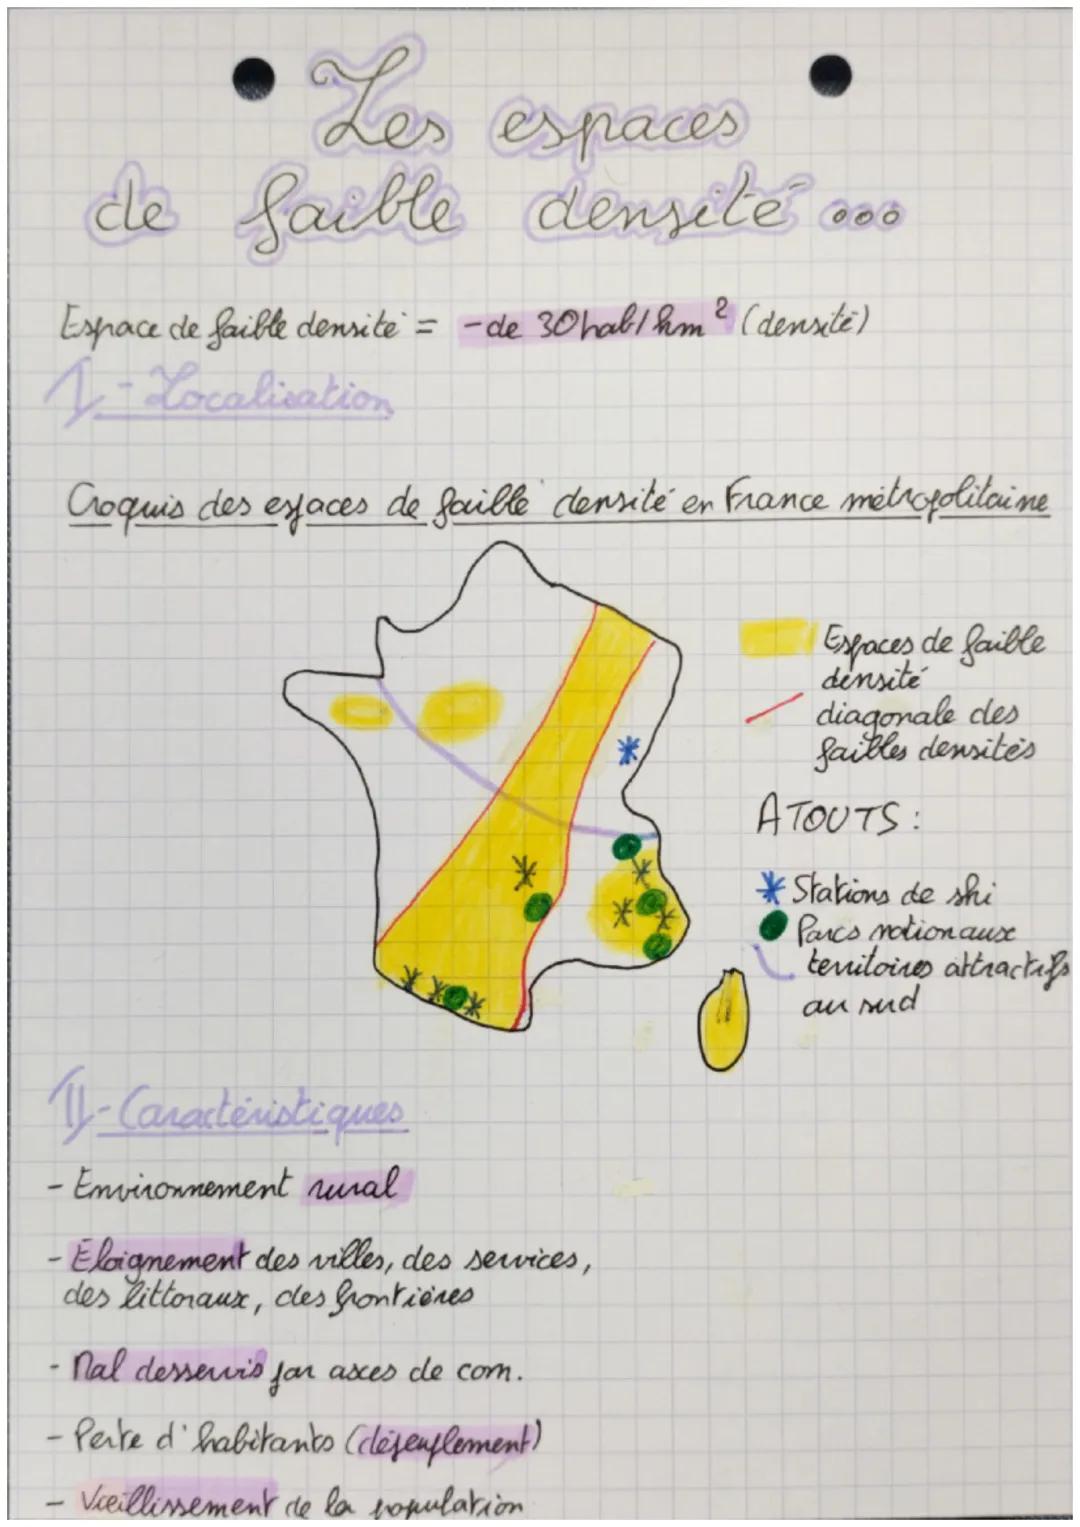 Les espaces
de faible densité...
Espace de faible densité = -de 30 hab/km² (densité)
I - Localisation
Croquis des espaces de faible densité en France métropolitaine
Espaces de faible
densité
diagonale des
faibles densités
ATOUTS :
Stations de ski
Parcs nationaux
territoires attractifs
au sud
II - Caractéristiques
- Environnement rural
- Eloignement des villes, des services,
des littoraux, des frontières
- Mal desservis par axes de com.
- Perte d'habitants (dépeuplement)
- Vieillissement de la population